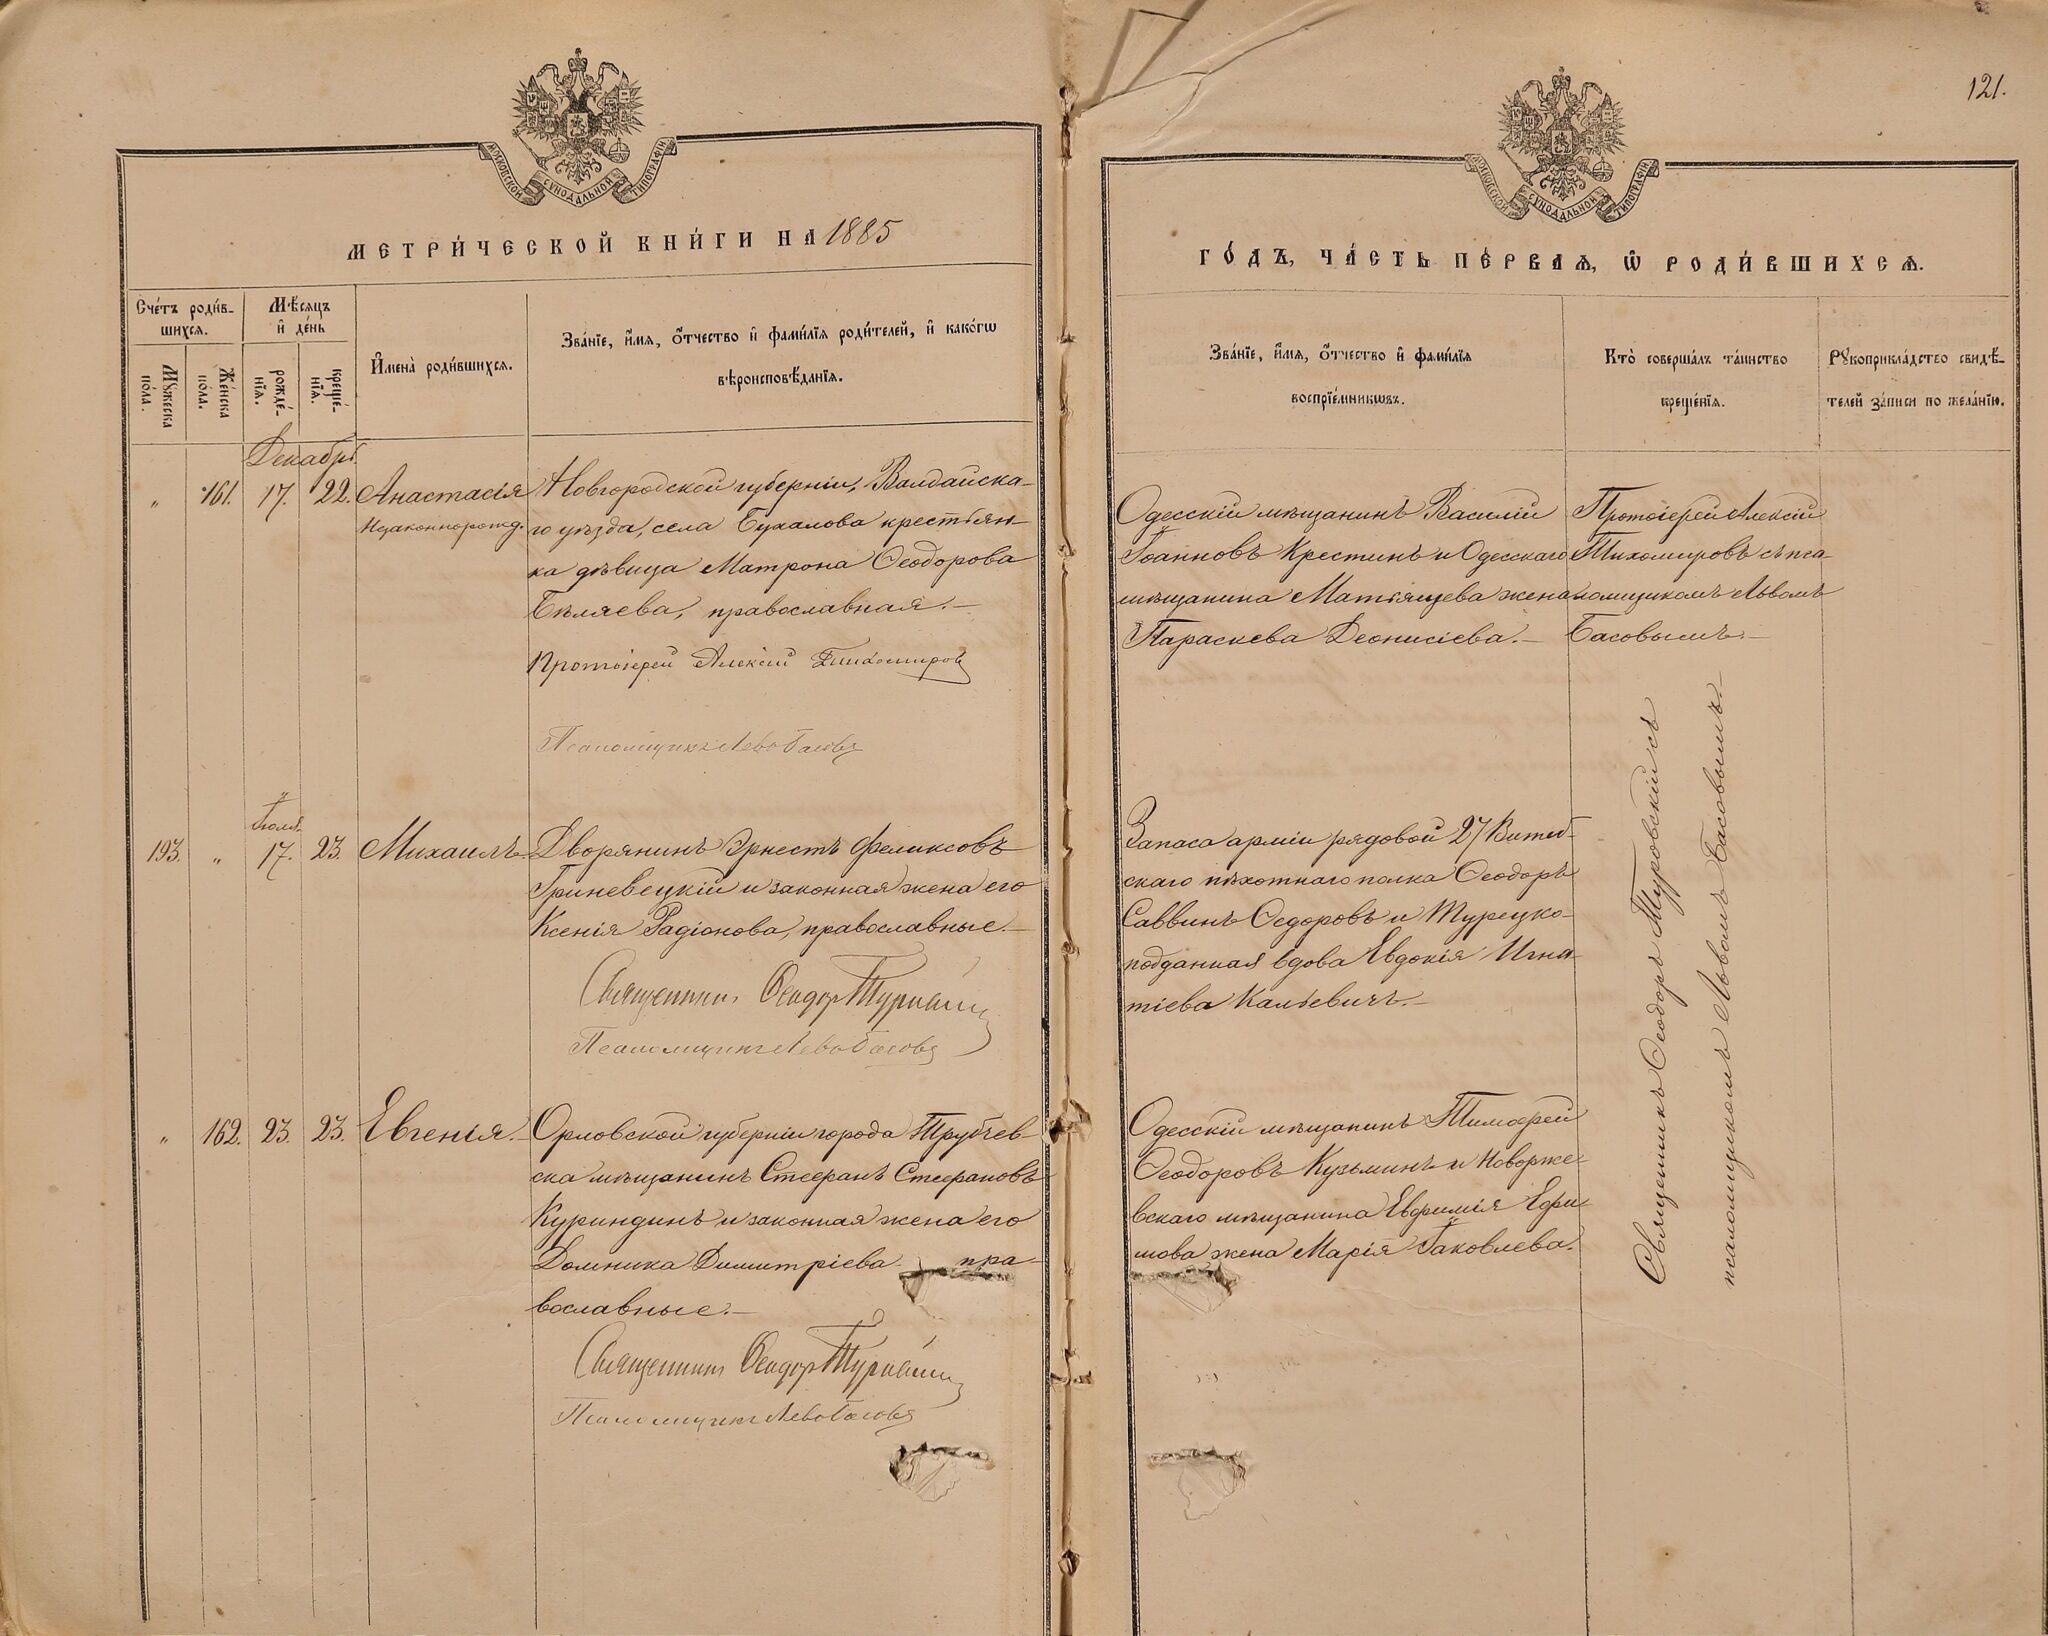 121.
МОСКОВСКОЙ СУНОДАЛЬНОЙ ТИПОГРАФІИ
МОСКОВСКОЙ СУНОДАЛЬНОЙ ТИПОГРАФІИ
МЕТРИ́ЧЕСКОЙ КНИ́ГИ НА 1885
ГО́ДЪ, ЧА́СТЬ ПЕ́РВАѦ, Ѡ҆ РОДИ́ВШИХСѦ.
Сче́тъ роди́в-
шихсѧ.
Мꙋ́жеска
по́ла.
Же́нска
по́ла.
Мѣ́сѧцъ
и҆ де́нь
рожде́-
нїѧ.
креще́-
нїѧ.
И҆мена̀ роди́вшихсѧ.
Зва́нїе, и҆́мѧ, ѻ҆́тчество и҆ фами́лїѧ роди́телей, и҆ како́гѡ
вѣроисповѣ́данїѧ.
Зва́нїе, и҆́мѧ, ѻ҆́тчество и҆ фами́лїѧ
воспрїе́мникѡвъ.
Кто̀ соверша́лъ та́инство
креще́нїѧ.
Рꙋкоприкла́дство свидѣ́-
телей за́писи по жела́нїю.
Декабрь
„ 161. 17. 22. Анастасія
Незаконнорожд.
Новгородской губерніи, Валдайска-
го уѣзда, села Бухалова крестьян-
ка дѣвица Матрона Ѳеодорова
Бѣляева, православная.—
Протоіерей Алексій Тихомиров
Псаломщикъ Левъ Басовъ
Одесскій мѣщанинъ Василій
Іоанновъ Крестинъ и Одесскаго
мѣщанина Матвѣева жена
Параскева Деонисіева.—
Протоіерей Алексій
Тихомировъ съ пса
ломщикомъ Львомъ
Басовымъ.—
Іюля
193. „ 17. 23. Михаилъ.
Дворянинъ Эрнестъ Феликсовъ
Гриневецкій и законная жена его
Ксенія Радіонова, православные.—
Священникъ Ѳеодоръ Туровскій
Псаломщикъ Левъ Басовъ
Запаса арміи рядовой 27 Витеб-
скаго пѣхотнаго полка Ѳеодоръ
Саввинъ Ѳедоровъ и Турецко-
подданная вдова Евдокія Игна-
тіева Кальевичъ.—
Священникъ Ѳеодоръ Туровскій съ
псаломщикомъ Львомъ Басовымъ.—
„ 162. 23. 23. Евгенія.
Орловской губерніи города Трубчев-
ска мѣщанинъ Стефанъ Стефановъ
Куриндинъ и законная жена его
Домника Димитріева пра-
вославные.—
Священникъ Ѳеодоръ Туровскій
Псаломщикъ Левъ Басовъ
Одесскій мѣщанинъ Тимоѳей
Ѳеодоровъ Кузьминъ и Новорже-
вскаго мѣщанина Евфимія Ефи
мова жена Марія Іаковлева.